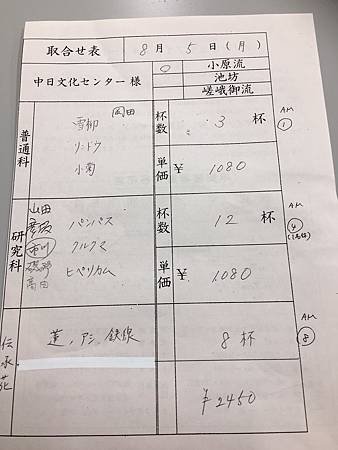 取合せ表 8月5日(月)
中日文化センター様 ○ 小原流
池坊
嵯峨御流
普通科 岡田 杯数 3杯 AM ①
雪柳
リンドウ 単価 ¥1080
小菊
研究科 山田 杯数 12杯 AM ④
パンパス
市川 クルクマ
ヒペリカム 単価 ¥1080
高田
伝承花 蓮、アシ、鉄線 8杯 AM ⑧
¥2450